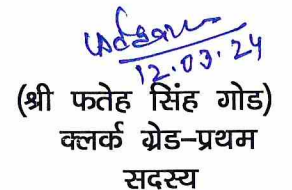 12.03.24
(श्री फतेह सिंह गोड)
क्लर्क ग्रेड–प्रथम
सदस्य